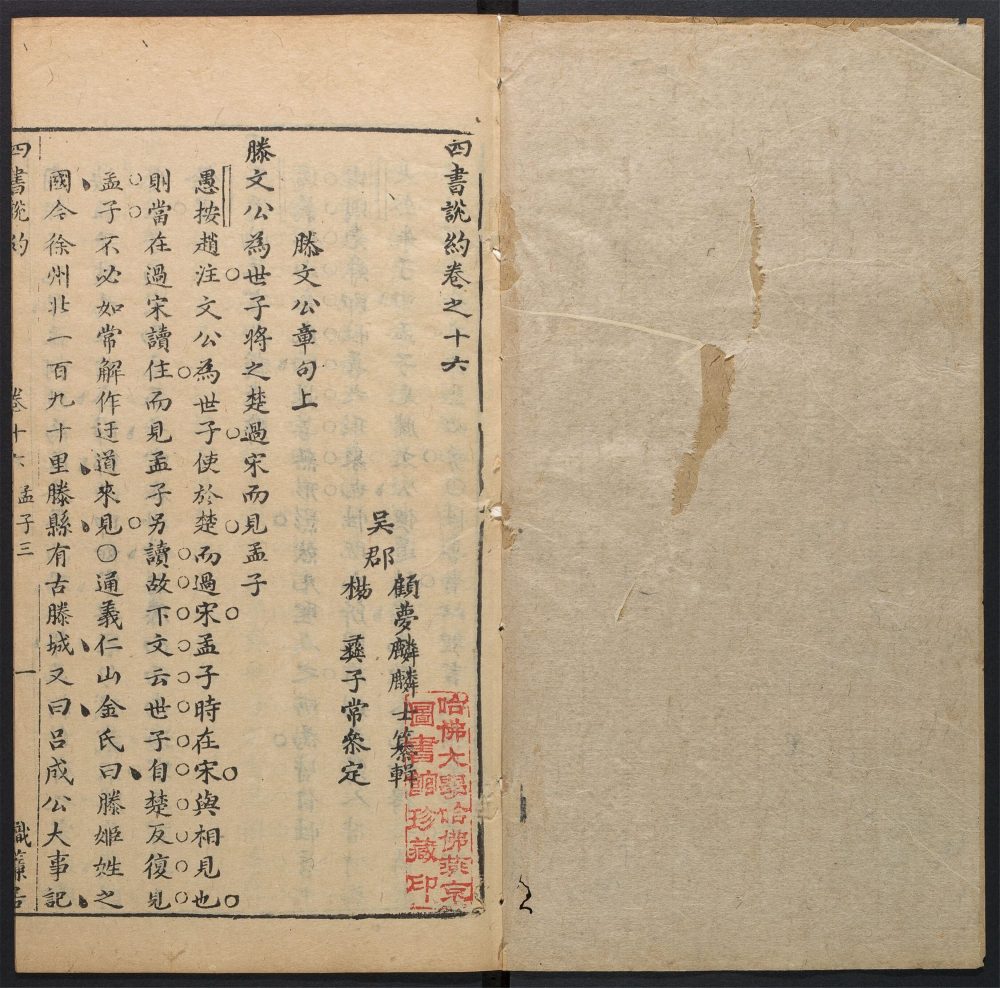 四書說約卷之十六
吳郡
顧夢麟麟士纂輯
楊彞子常叅定
滕文公章句上
滕文公為世子將之楚過宋而見孟子
愚按趙注文公為世子使於楚而過宋孟子時在宋與相見也
則當在過宋讀住而見孟子另讀故下文云世子自楚反復見
孟子不必如常解作迂道來見〇通義仁山金氏曰滕姬姓之
國今徐州北二百九十里滕縣有古滕城又曰呂成公大事記
四書說約 卷十六 孟子三 一 織簾居
哈佛大學哈佛燕京
圖書館珍藏印